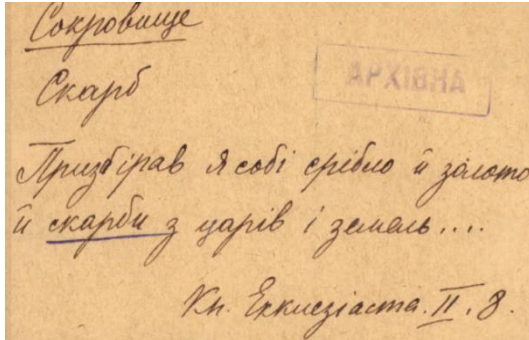 Сокровище
Скарб
АРХІВНА
Призбірав я собі срібло й золото
й скарби з царів і земель....
Кн. Екклезіаста. II. 8.